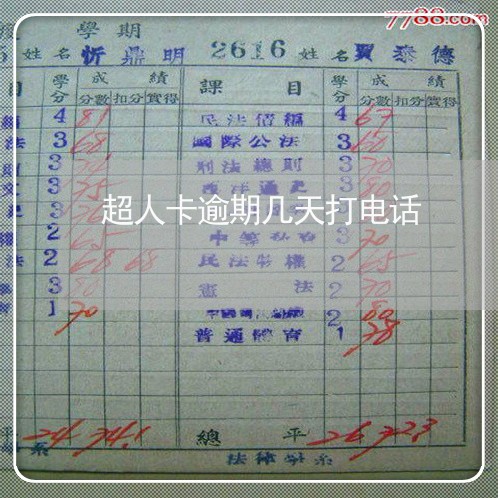 7788.com
學期
姓名 忻鼎明 2616 姓名 賈泰德
目 學分 成績 課目 學分 成績
分數 扣分 實得 分數 扣分 實得
4 81 民法債編 4 67
法 3 68 國際公法 3 60
3 刑法總則 3 70
3 75 西洋通史 3 80
超人卡逾期几天打电话
2 65 3 70
法 2 68 68 民法物權 2 65
3 80 憲法 2 70
1 70 2 80
普通體育 1 78
平 24 74.1 總平 26 72.3
系 法律學系